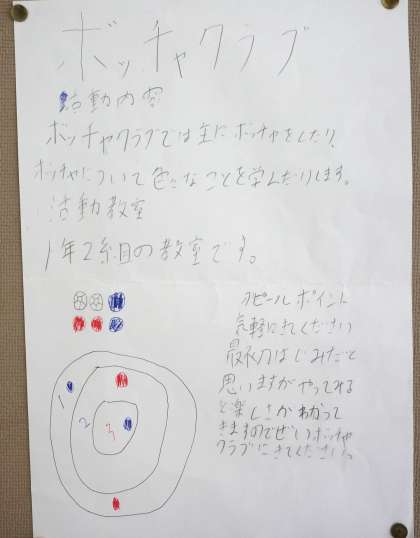 ボッチャクラブ
活動内容
ボッチャクラブでは主にボッチャをしたり、
ボッチャについて色々なことを学んだりします。
活動教室
1年2組の教室です。
アピールポイント
気軽にきてください
最初はじみだと
思いますがやってみる
と楽しさがわかって
きますのでぜひボッチャ
クラブにきてください。
1
2
3